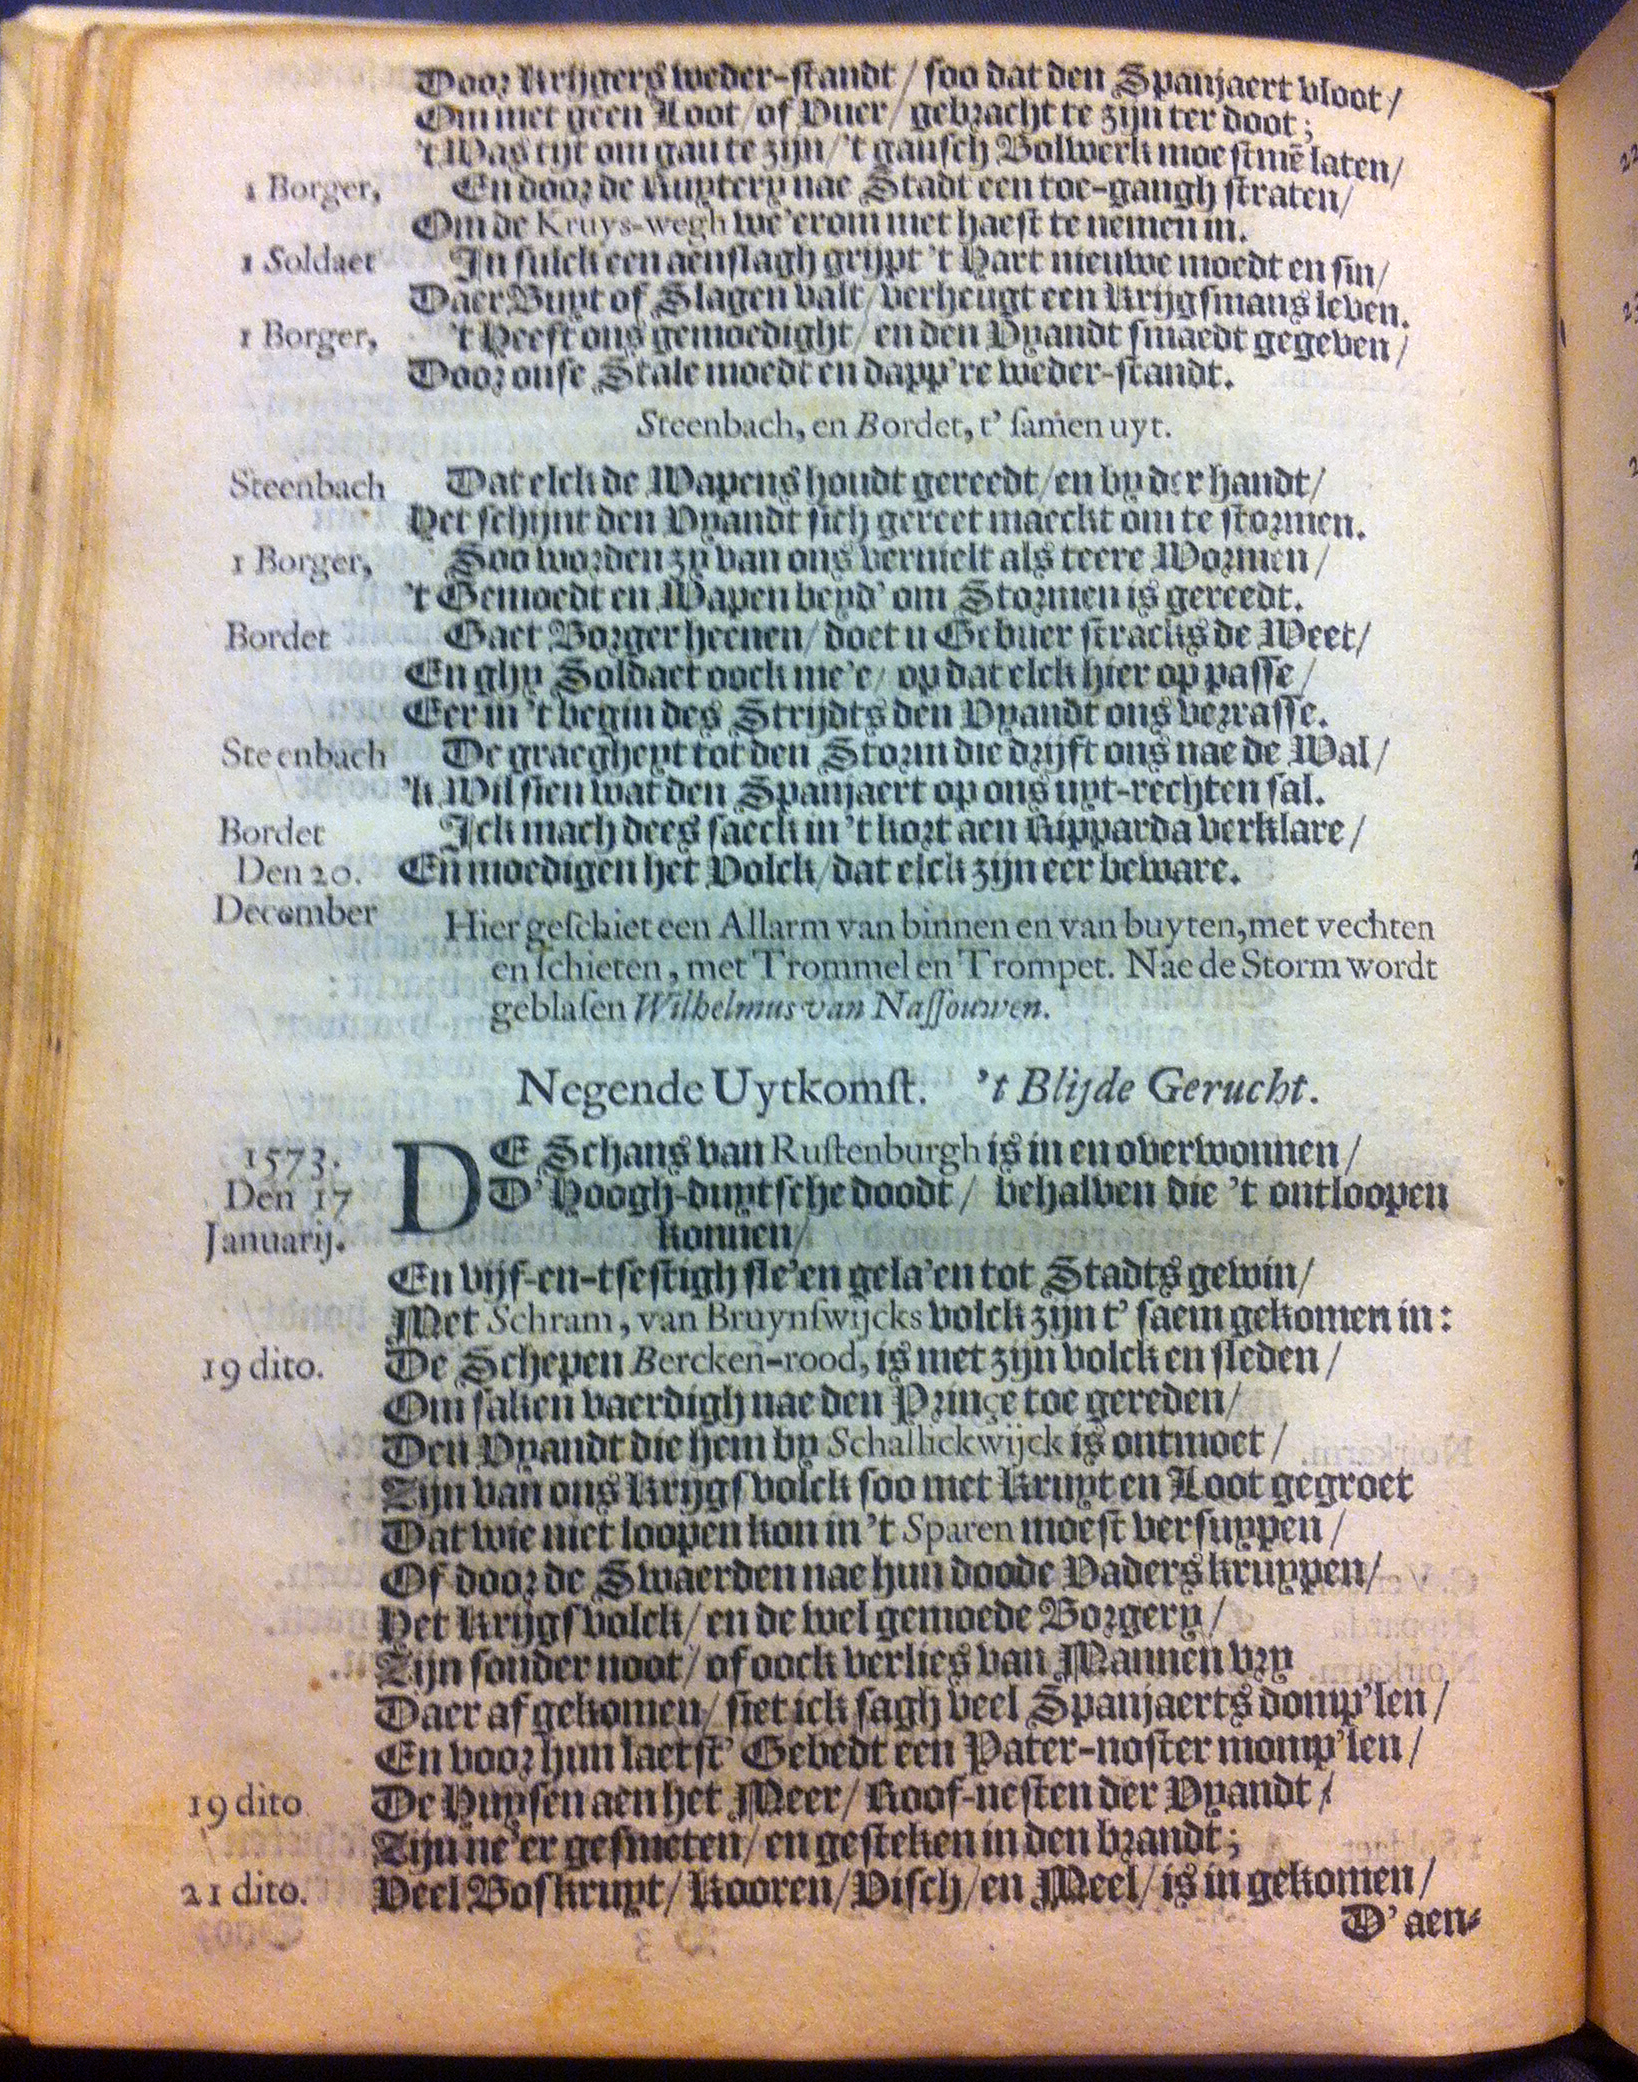 Door Krijgers weder-standt / soo dat den Spanjaert vloot /
Om met geen Loot / of Vuer / gebracht te zijn ter doot;
't Was tijt om gau te zijn / 't gansch Bolwerk moest mẽ laten /
1 Borger, En door de Ruytery nae Stadt een toe-gangh straten /
Om de Kruys-wegh we'erom met haest te nemen in.
1 Soldaet In sulck een aenslagh grijpt 't Hart nieuwe moedt en sin /
Daer Buyt of Slagen valt / verheugt een Krijgsmans leven.
1 Borger, 't Heeft ons gemoedight / en den Vyandt smaedt gegeven /
Door onse Stale moedt en dapp're weder-standt.
Steenbach, en Bordet, t' samen uyt.
Steenbach Dat elck de Wapens houdt gereedt / en by der handt /
Het schijnt den Vyandt sich gereet maeckt om te stormen.
1 Borger, Soo worden zy van ons vernielt als teere Wormen /
't Gemoedt en Wapen beyd' om Stormen is gereedt.
Bordet Gaet Borger heenen / doet u Gebuer stracks de Weet /
En ghy Soldaet oock me'e / op dat elck hier op passe /
Eer in 't begin des Strijdts den Vyandt ons verrasse.
Steenbach De graegheyt tot den Storm die drijft ons nae de Wal /
'k Wil sien wat den Spanjaert op ons uyt-rechten sal.
Bordet Ick mach dees saeck in 't kort aen Ripparda verklare /
Den 20. En moedigen het Volck / dat elck zijn eer beware.
December
Hier geschiet een Allarm van binnen en van buyten, met vechten
en schieten, met Trommel en Trompet. Nae de Storm wordt
geblasen Wilhelmus van Nassouwen.
Negende Uytkomst. 't Blijde Gerucht.
1573. DE Schans van Rustenburgh is in en overwonnen /
Den 17 D' Hoogh-duytsche doodt / behalven die 't ontloopen
Januarij. konnen /
En vijf-en-tsestigh sle'en gela'en tot Stadts gewin /
Met Schram, van Bruynswijcks volck zijn t' saem gekomen in:
19 dito. De Schepen Bercken-rood, is met zijn volck en sleden /
Om saken vaerdigh nae den Prince toe gereden /
Den Vyandt die hem by Schallickwijck is ontmoet /
Zijn van ons Krijgsvolck soo met Kruyt en Loot gegroet
Dat wie niet loopen kon in 't Sparen moest versuypen /
Of door de Swaerden nae hun doode Vaders kruypen /
Het Krijgsvolck / en de wel gemoede Borgery /
Zijn sonder noot / of oock verlies van Mannen vry
Daer af gekomen / siet ick sagh veel Spanjaerts domp'len /
En voor hun laetst' Gebedt een Pater-noster momp'len /
19 dito De Huysen aen het Meer / Roof-nesten der Vyandt /
Zijn ne'er gesmeten / en gesteken in den brandt;
21 dito. Veel Boskruyt / Kooren / Visch / en Meel / is in gekomen /
D' aen-